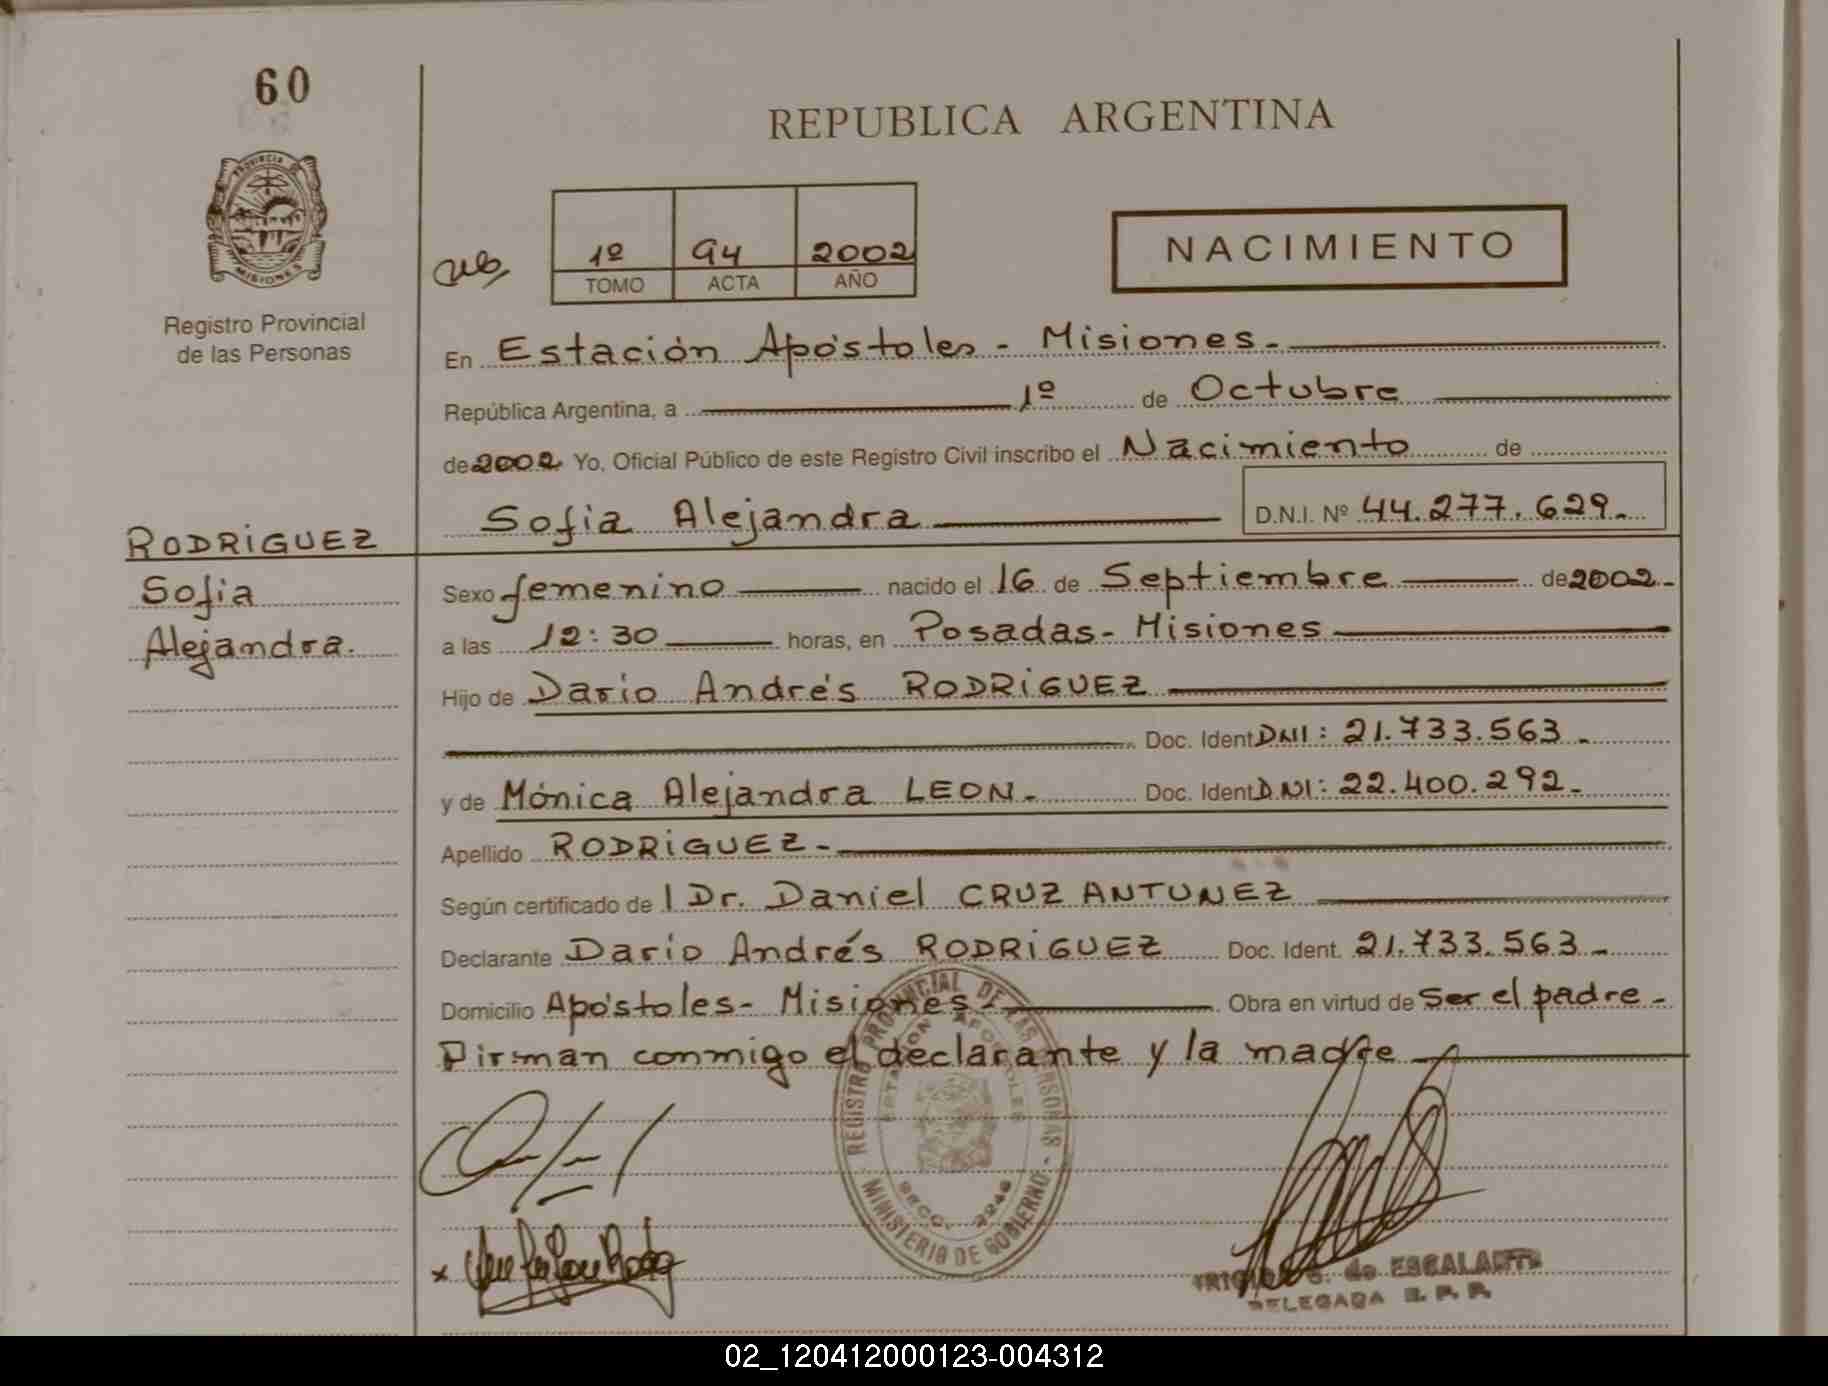 60
REPUBLICA ARGENTINA
PROVINCIA DE
MISIONES
Registro Provincial
de las Personas
1º 94 2002
TOMO ACTA AÑO
NACIMIENTO
En Estación Apóstoles - Misiones -
República Argentina, a 1º de Octubre
de 2002 Yo, Oficial Público de este Registro Civil inscribo el Nacimiento de
Sofia Alejandra D.N.I. Nº 44.277.629.-
RODRIGUEZ
Sofia
Alejandra.
Sexo femenino nacido el 16 de Septiembre de 2002-
a las 12:30 horas, en Posadas - Misiones
Hijo de Dario Andrés RODRIGUEZ
Doc. Ident DNI: 21.733.563 -
y de Mónica Alejandra LEON.- Doc. Ident D.NI: 22.400.292.-
Apellido RODRIGUEZ-
Según certificado de l Dr. Daniel CRUZ ANTUNEZ
Declarante Darío Andrés RODRIGUEZ Doc. Ident. 21.733.563-
Domicilio Apóstoles- Misiones- Obra en virtud de ser el padre -
Firman conmigo el declarante y la madre
REGISTRO PROVINCIAL DE LAS PERSONAS
ESTACION APOSTOLES
SECC.
MINISTERIO DE GOBIERNO
S. de ESCALANTE
DELEGADA R. P. P.
02_120412000123-004312